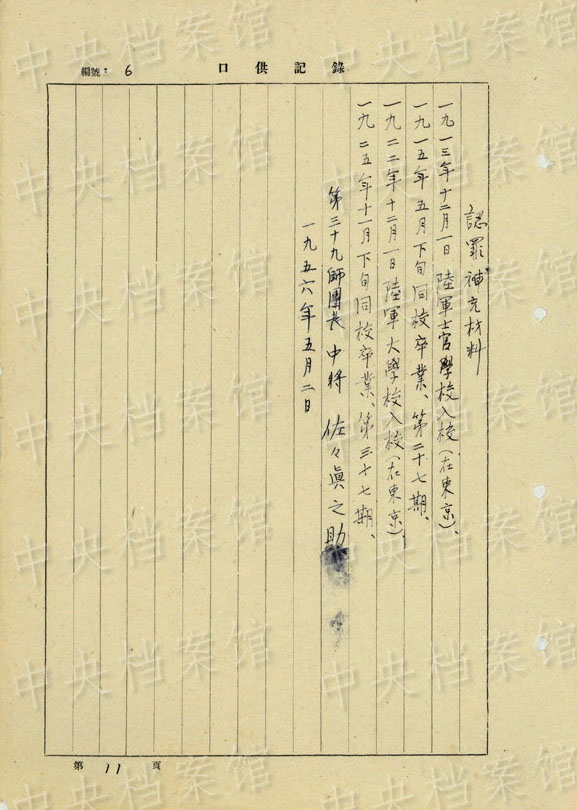 編號：6
口供記錄
認罪補充材料
一九一三年十二月一日陸軍士官學校入校（在東京）、
一九一五年五月下旬同校卒業、第二十七期、
一九二二年十二月一日陸軍大學校入校（在東京）、
一九二五年十一月下旬同校卒業、第三十七期、
第三十九師團長 中將 佐々眞之助
一九五六年五月二日
第11頁
中央档案馆